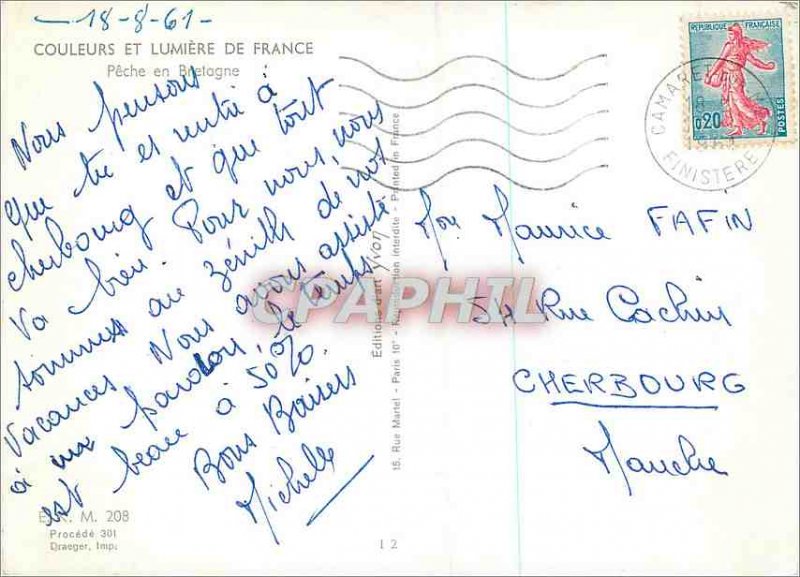 18-8-61-
COULEURS ET LUMIÈRE DE FRANCE
Pêche en Bretagne
Nous pensons
que tu es rentré à
cherbourg et que tout
va bien. Pour nous, nous
sommes au zénith de nos
vacances. Nous avons assisté
à un pardon, le temps
est beau à 50%.
Bons Baisers
Michelle
E. K. M. 208
Procédé 301
Draeger, Imp.
12
15, Rue Martel - Paris 10e - Reproduction interdite - Printed in France
Editions d'art Yvon
REPUBLIQUE FRANÇAISE
0,20
POSTES
CAMARET
FINISTERE
Mon. Maurice FAFIN
54 Rue Cachin
CHERBOURG
Manche
CPAPHIL